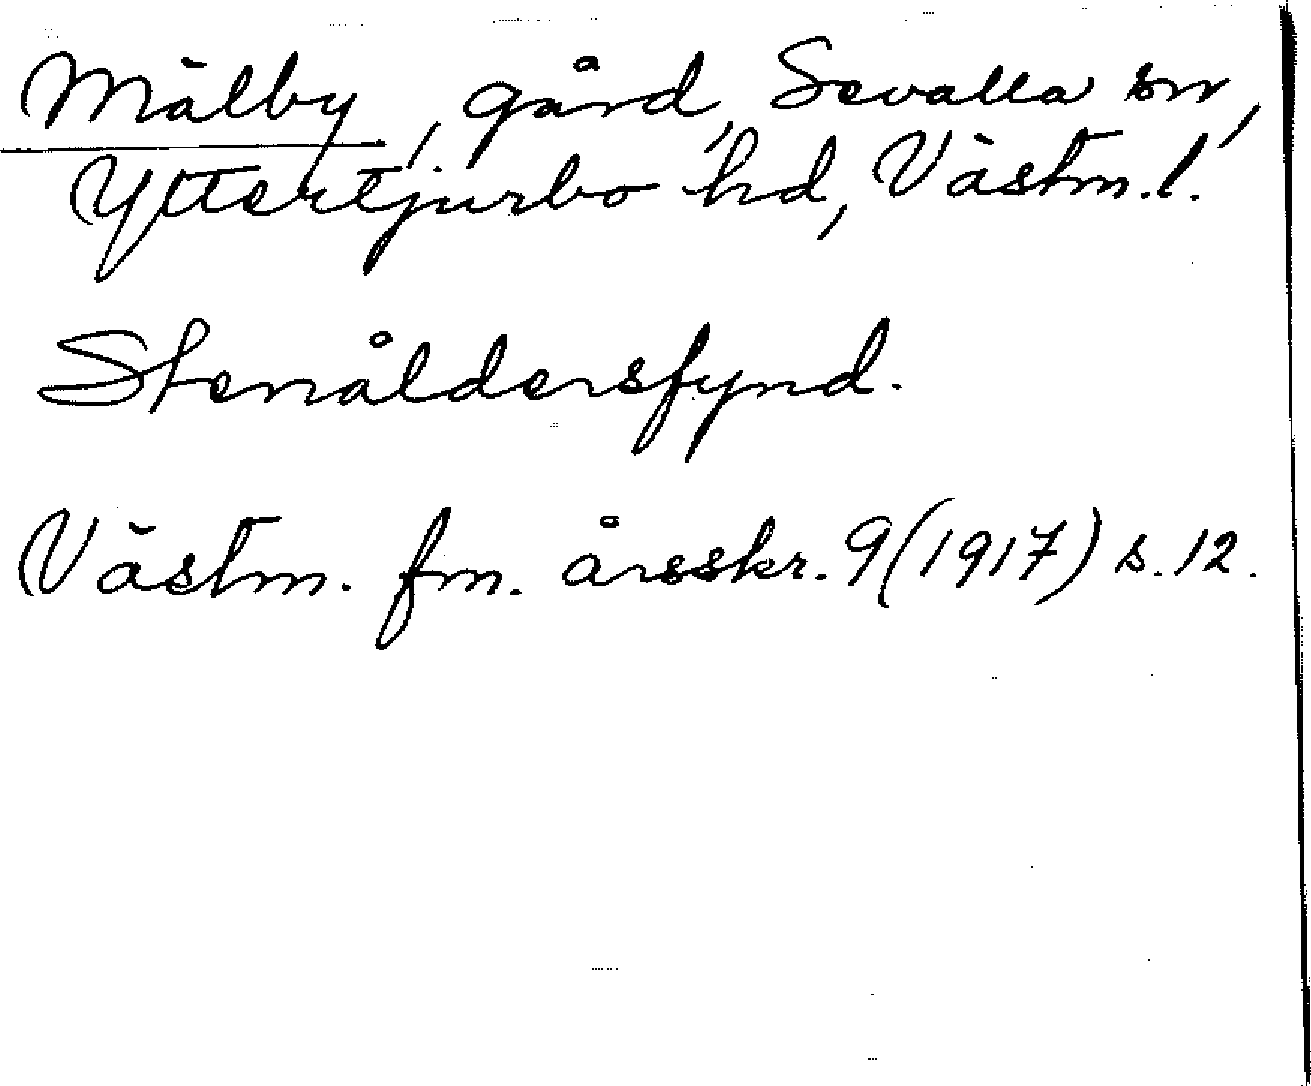 Mälby, gård, Sevalla sn,
Yttertjurbo hd, Västm. l.
Stenåldersfynd.
Västm. fm. årsskr. 9 (1917) s. 12.